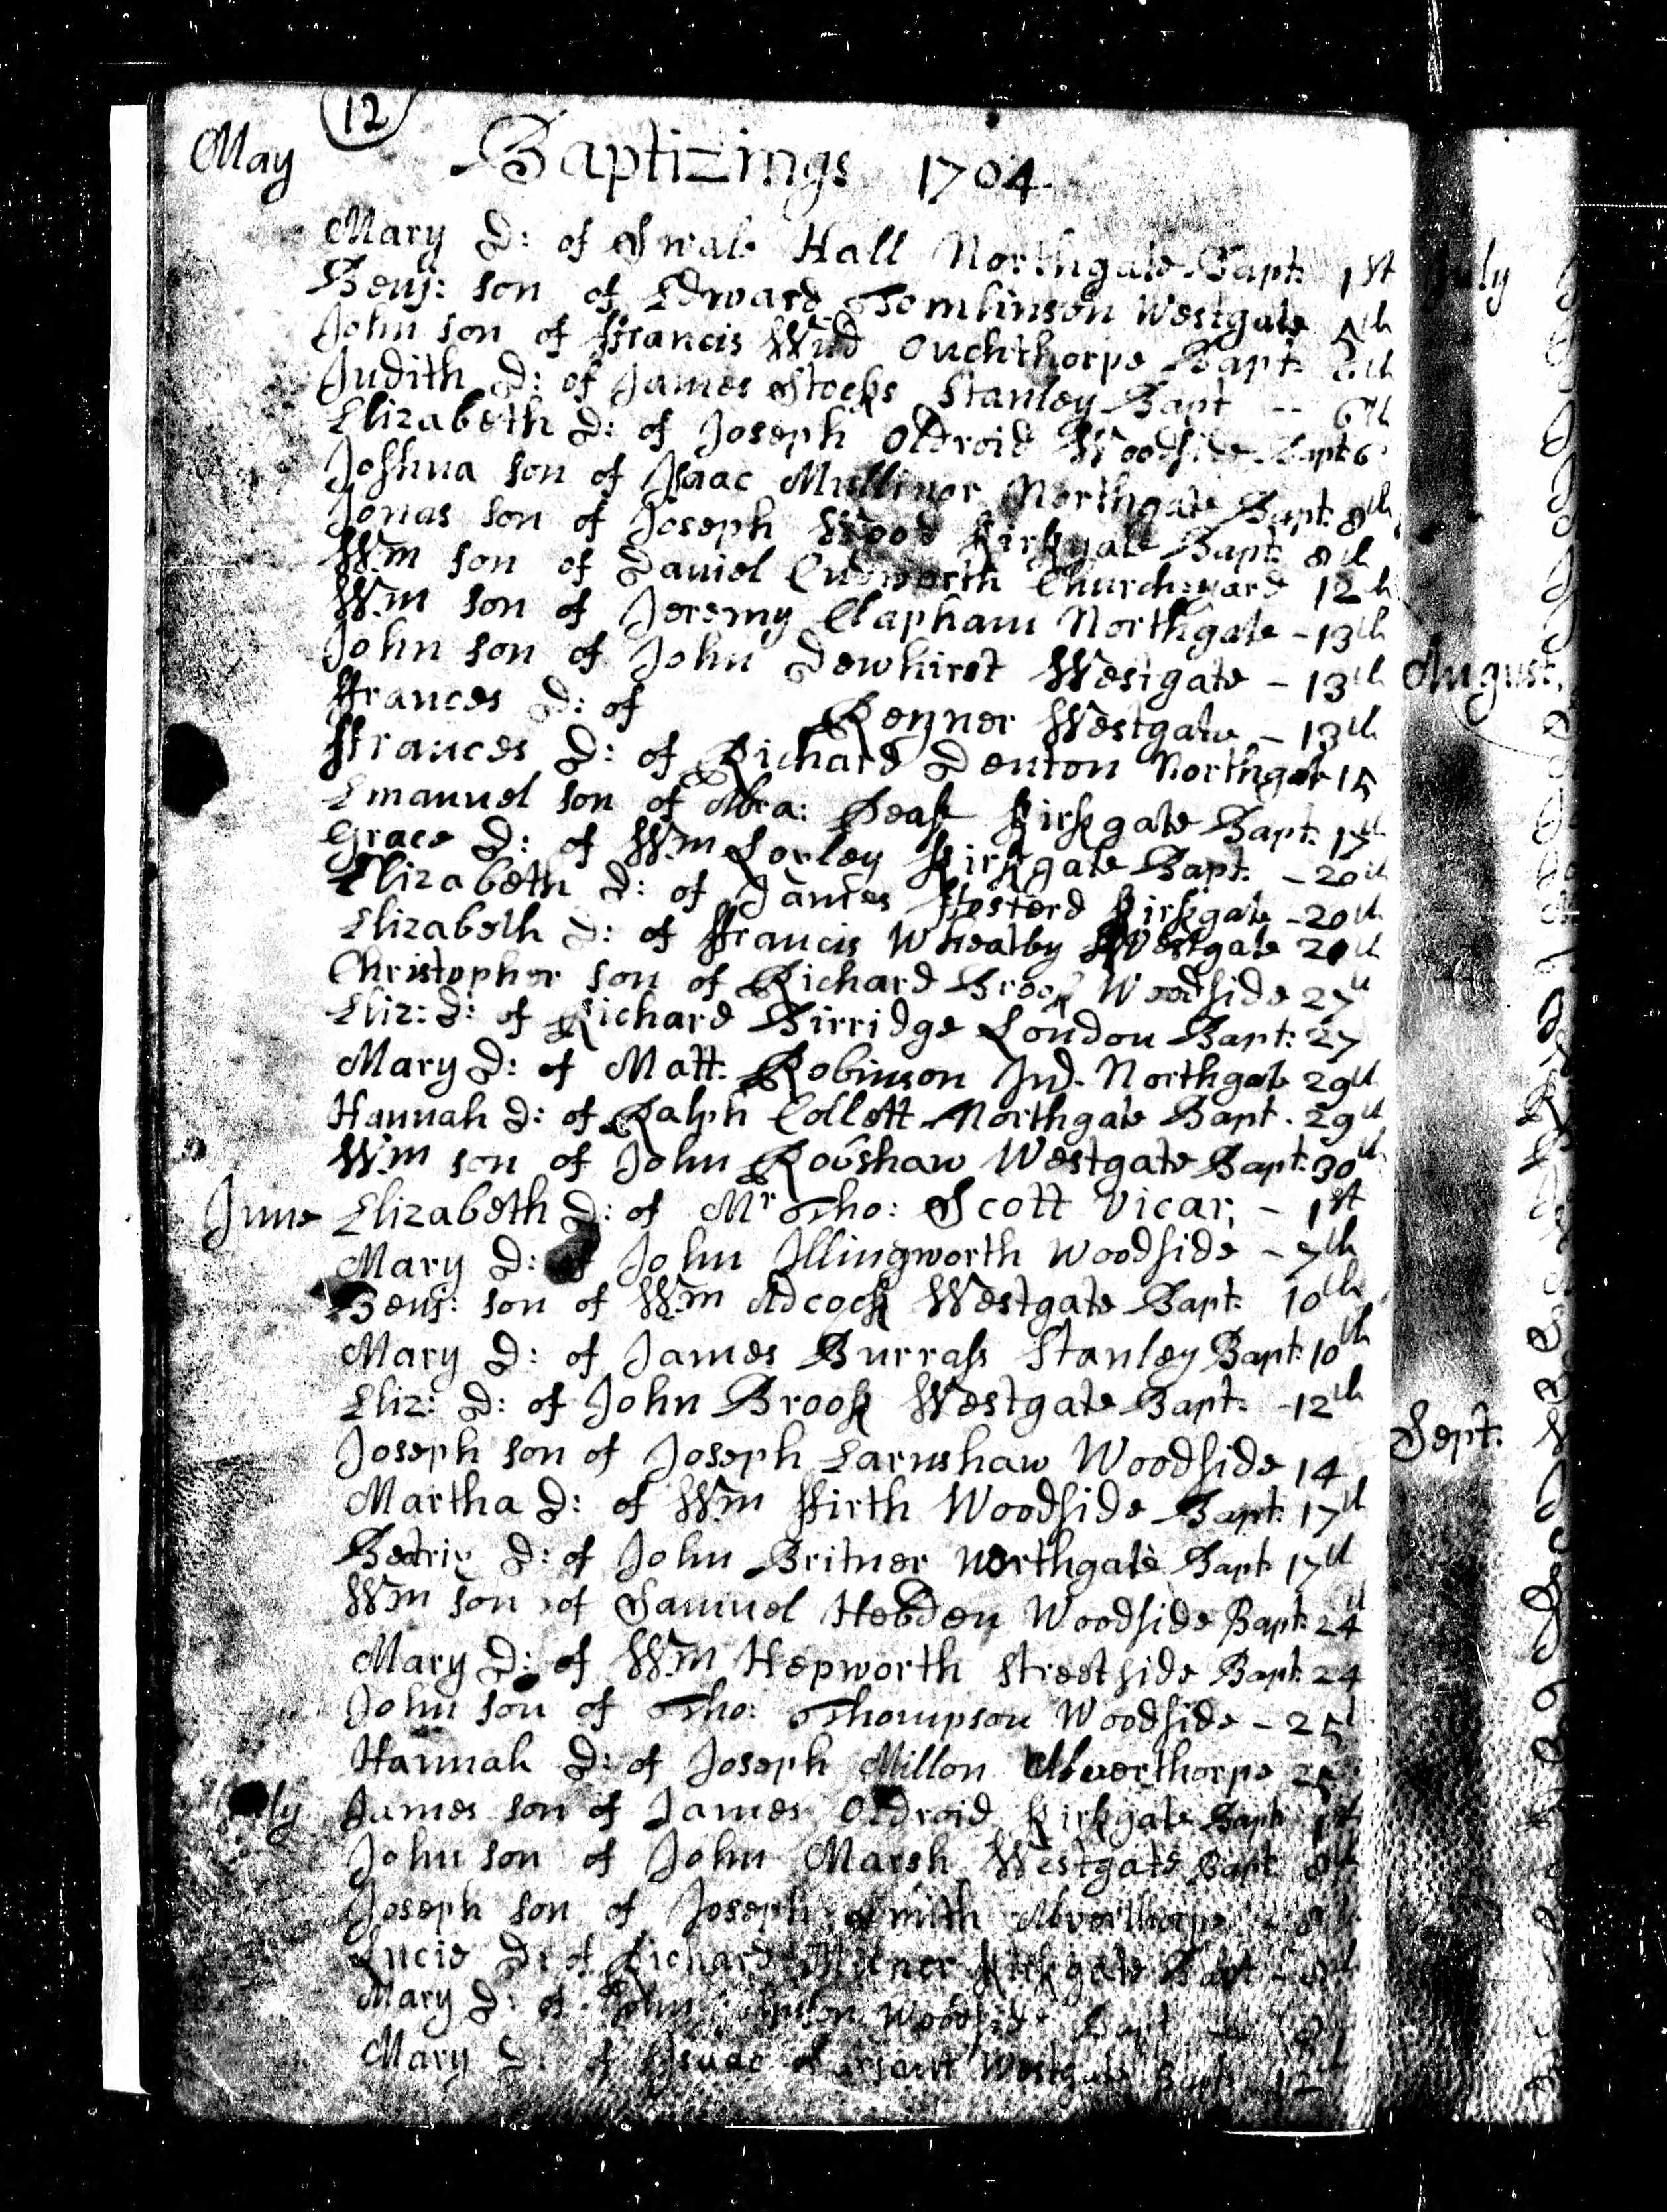 12
May Baptizings 1704
Mary D: of Swale Hall Northgate Bapt: 1st
Benj: son of Edward Tomlinson Westgate 5th
John son of ffrancis Wud Ouchthorpe Bapt:
Judith D: of James Stocks Stanley Bapt -- 6th
Elizabeth D: of Joseph Oldroid Woodside Bapt 6
Joshua son of Isaac Mullinor Northgate Bapt: 8th
Jonas son of Joseph Wood Kirkgate Bapt: 8th
Wm son of Daniel Cudworth Churchyard 12th
Wm son of Jeremy Clapham Northgate - 13th
John son of John Dewhirst Westgate - 13th
ffrances D: of Reyner Westgate - 13th
ffrances D: of Richard Denton Northgate 15
Emanuel son of Abra: Beast Kirkgate Bapt: 17th
Grace D: of Wm Loxley Kirkgate Bapt. - 20th
Elizabeth D: of James Kirkgate - 20th
Elizabeth D: of ffrancis Wheatby Westgate 20th
Christopher son of Richard Brook Woodside 27th
Eliz: D: of Richard Birridge London Bapt: 27
Mary D: of Matt. Robinson Jud. Northgate 29th
Hannah D: of Ralph Collett Northgate Bapt. 29th
Wm son of John Robshaw Westgate Bapt: 30th
June Elizabeth D: of Mr Tho: Scott Vicar, - 1st
Mary D: of John Illingworth Woodside - 7th
Benj: son of Wm Adcock Westgate Bapt: 10th
Mary D: of James Burrass Stanley Bapt: 10th
Eliz: D: of John Brook Westgate Bapt. - 12th
Joseph son of Joseph Earnshaw Woodside 14
Martha D: of Wm ffirth Woodside Bapt: 17th
Beatrix D: of John Britner Northgate Bapt 17th
Wm son of Samuel Hebden Woodside Bapt: 24th
Mary D: of Wm Hepworth Streetside Bapt: 24
John son of Tho: Thompson Woodside - 25th
Hannah D: of Joseph Millon Alverthorpe 25
July James son of James Oldroid Kirkgate Bapt 1st
John son of John Marsh Westgate Bapt 8th
Joseph son of Joseph Smith Alverthorpe - 8th
Lucie D: of Richard Milner Kirkgate Bapt
Mary D: of John Woodside Bapt
Mary D: of Westgate Bapt 12
July
August
Sept: